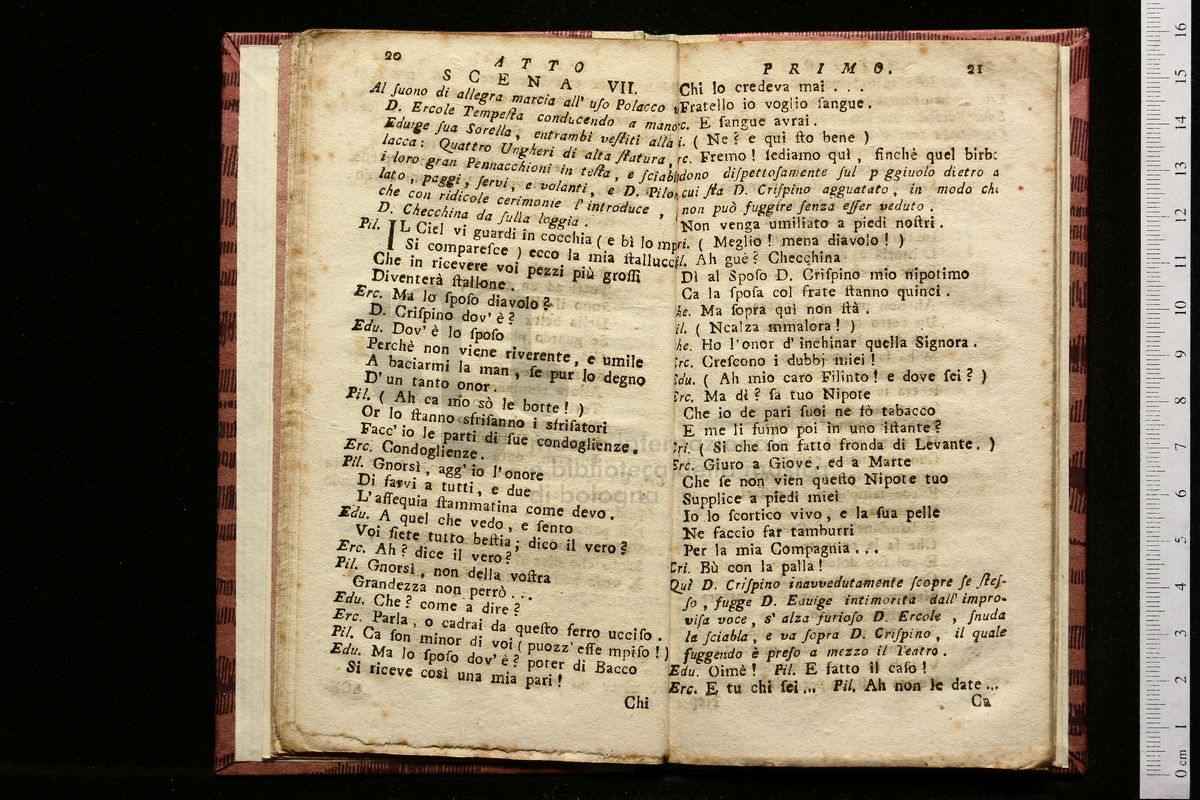 20
ATTO
SCENA VII.
Al ſuono di allegra marcia all' uſo Polacco
D. Ercole Tempeſta conducendo a mano
Eduige ſua Sorella, entrambi veſtiti alla
lacca: Quattro Ungheri di alta ſtatura,
i loro gran Pennacchioni in teſta, e ſciabl
lato, paggi, ſervi, e volanti, e D. Pilo
che con ridicole cerimonie l'introduce,
D. Checchina da ſulla loggia.
Pil. IL Ciel vi guardi in cocchia (e bì lo mp
Si compareſce) ecco la mia ſtallucc
Che in ricevere voi pezzi più groſſi
Diventerà ſtallone.
Erc. Ma lo ſpoſo diavolo?
D. Criſpino dov' è?
Edu. Dov' è lo ſpoſo
Perchè non viene riverente, e umile
A baciarmi la man, ſe pur lo degno
D'un tanto onor.
Pil. (Ah ca mo sò le botte!)
Or lo ſtanno sfriſanno i sfriſatori
Facc' io le parti di ſue condoglienze.
Erc. Condoglienze.
Pil. Gnorsì, agg' io l'onore
Di farvi a tutti, e due
L'aſſequia ſtammatina come devo.
Edu. A quel che vedo, e ſento
Voi ſiete tutto beſtia; dico il vero?
Erc. Ah? dice il vero?
Pil. Gnorsì, non della voſtra
Grandezza non perrò...
Edu. Che? come a dire?
Erc. Parla, o cadrai da queſto ferro ucciſo.
Pil. Ca ſon minor di voi (puozz' eſſe mpiſo!)
Edu. Ma lo ſpoſo dov' è? poter di Bacco
Si riceve così una mia pari!
Chi
PRIMO. 21
Chi lo credeva mai . . .
Fratello io voglio ſangue.
c. E ſangue avrai.
i. (Ne? e qui ſto bene)
rc. Fremo! ſediamo quì, finchè quel birb
dono diſpettoſamente ſul p ggiuolo dietro a
cui ſta D. Criſpino agguatato, in modo che
non può fuggire ſenza eſſer veduto.
Non venga umiliato a piedi noſtri.
ri. (Meglio! mena diavolo!)
il. Ah guè? Checchina
Dì al Spoſo D. Criſpino mio nipotimo
Ca la ſpoſa col frate ſtanno quinci.
he. Ma ſopra quì non ſtà.
il. (Ncalza mmalora!)
he. Ho l'onor d'inchinar quella Signora.
Erc. Creſcono i dubbj miei!
Edu. (Ah mio caro Filinto! e dove ſei?)
Erc. Ma dì? ſa tuo Nipote
Che io de pari ſuoi ne fò tabacco
E me li fumo poi in uno iſtante?
Cri. (Si che ſon fatto fronda di Levante.)
Erc. Giuro a Giove, ed a Marte
Che ſe non vien queſto Nipote tuo
Supplice a piedi miei
Io lo ſcortico vivo, e la ſua pelle
Ne faccio far tamburri
Per la mia Compagnia...
Cri. Bù con la palla!
Quì D. Criſpino inavvedutamente ſcopre ſe ſteſ-
ſo, fugge D. Eduige intimorita dall' impro-
viſa voce, s'alza furioſo D. Ercole, ſnuda
la ſciabla, e va ſopra D. Criſpino, il quale
fuggendo è preſo a mezzo il Teatro.
Edu. Oimè! Pil. E fatto il caſo!
Erc. E tu chi ſei... Pil. Ah non le date...
Ca
biblioteca
di bologna
0 cm 1 2 3 4 5 6 7 8 9 10 11 12 13 14 15 16